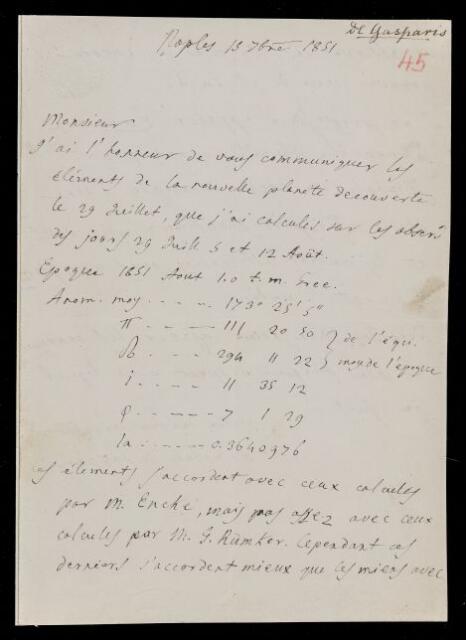 De Gasparis
45
Naples 13 7bre 1851
Monsieur
J'ai l'honneur de vous communiquer les
éléments de la nouvelle planète decouverte
le 29 Juillet, que j'ai calculés sur les observ.
des jours 29 Juill. 5 et 12 Août.
Epoque 1851 Aout 1.0 t. m. Gree.
Anom. moy . . . . 173° 25' 5"
π . . . . 111 20 50 } de l'équ.
☊ . . . . 294 11 22 } moy de l'époque
i . . . . 11 35 12
φ . . . . 7 1 29
la . . . . 0.3640976
es éléments s'accordent avec ceux calculés
par M. Encke, mais pas assez avec ceux
calculés par M. G. Rümker. Cependant ces
derniers s'accordent mieux que les miens avec